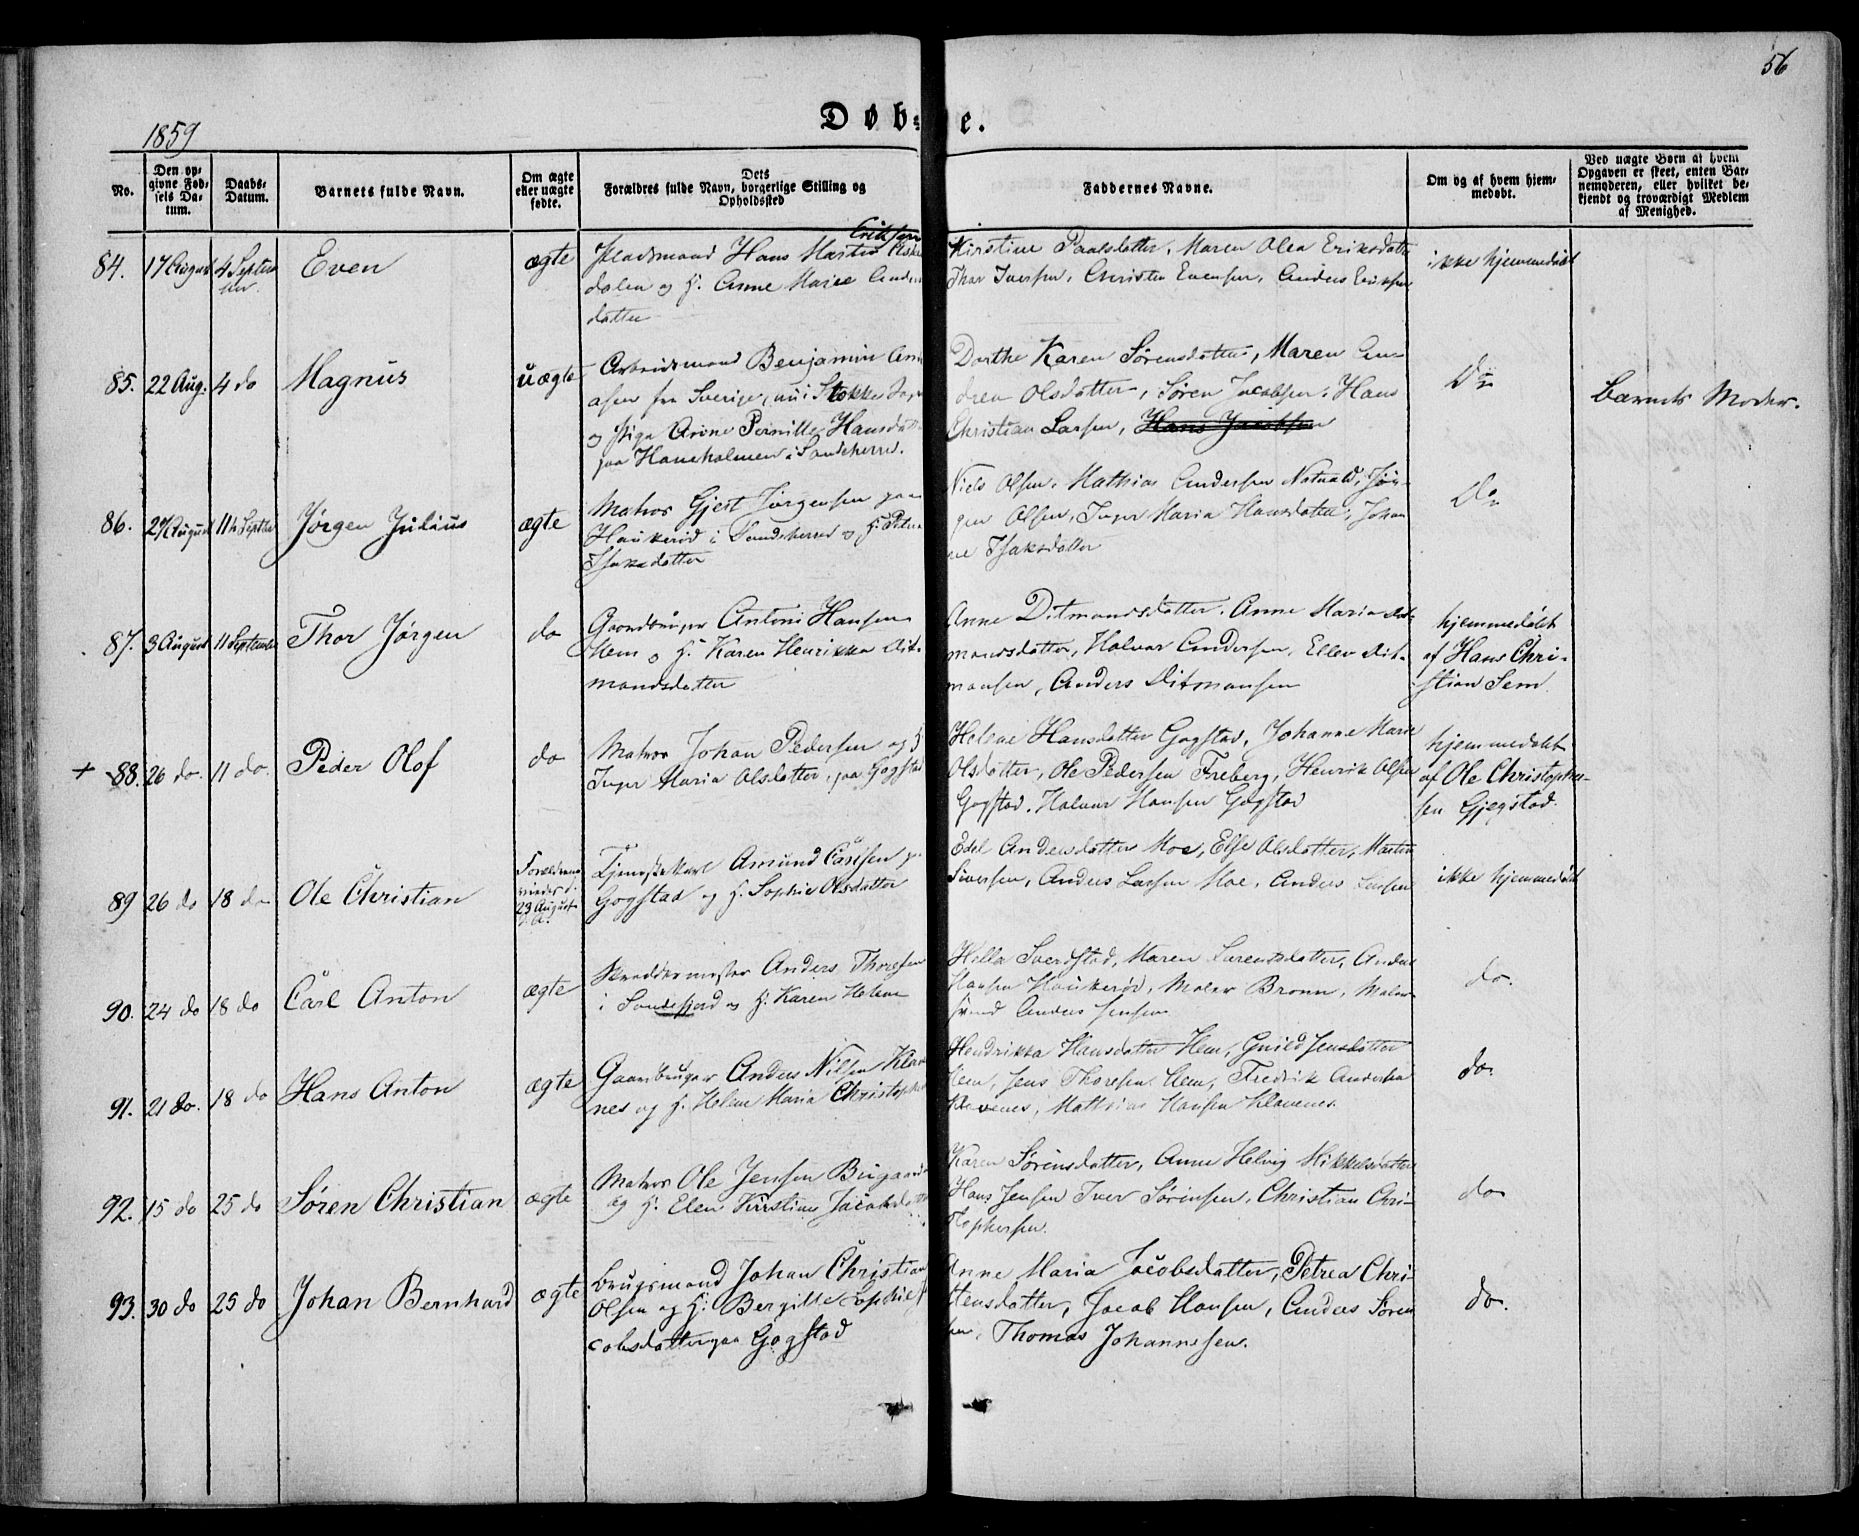 56
1859
Døb-
e.
No.
Den op-
givne Fød-
sels Da-
tum.
Daabs-
Datum.
Barnets fulde Navn.
Om ægte
eller uægte
fødte.
Dets
Forældres fulde Navn, borgerlige Stilling og
Opholdssted
Faddernes Navne.
Om og af hvem hjem-
medøbt.
Ved uægte Børn af hvem
Opgaven er skeet, enten Bar-
nemoderen, eller hvilket be-
kjendt og troværdigt Medlem
af Menighed.
84. 17 August 4 Septem
ber.
Even
ægte
Eriksen
Pladsmand Hans Martin
dalen og H. Anne Marie Anders
datter
Kirstine Paalsdatter, Maren Olea Eriksdatter
Thor Iversen, Christen Evensen, Anders Eriksen
ikke hjemmedøbt
85. 22 Aug. 4 do
Magnus
uægte
Arbeidsmand Benjamin
asen fra Sverige, nu i Stokke Sogn
og Pige Anne Pernille Hansdatter
paa Haneholmen i Sandeherred.
Dorthe Karen Sørensdatter, Maren An-
drea Olsdatter, Søren Jacobsen, Hans
Christian Larsen, Hans Jacobsen
Do
Barnets Moder.
86. 24 August 11te Septbr
Jørgen Julius
ægte
Matros Gjert Jørgensen paa
Haukerød i Sandeherred og H.
Isaksdatter
Niels Olsen, Mathias Andersen Natvald, Jør-
gen Olsen, Inger Maria Hansdatter, Johan
ne Isaksdatter
Do
87. 3 August 11 September
Thor Jørgen
do
Gaardbruger Antoni Hansen
Hem og H. Karen Henrikka Dit-
mandsdatter
Anne Ditmandsdatter, Anne Maria Dit-
mandsdatter, Halvor Andersen, Ellev Dit-
mansen, Anders Ditmansen
hjemmedøbt
af Hans Chri-
stian Sem.
+ 88. 26 do. 11 do.
Peder Olof
do
Matros Johan Pedersen og H
Inger Maria Olsdatter, paa Gogstad
Helene Hansdatter Gogstad, Johanne Marie
Olsdatter, Ole Pedersen Freberg, Henrik Olsen
Gogstad, Halvor Hansen Gogstad
hjemmedøbt
af Ole Christopher-
sen Gjegstad.
89 26 do 18 do
Ole Christian
Forældrene
viedes d.
23 August
d. A.
Tjenestekarl Amund Carlsen p
Gogstad og H. Sophie Olsdatter
Edel Andersdatter Moe, Else Olsdatter, Martin
Siversen, Anders Larsen Moe, Anders Larsen
ikke hjemmedøbt
90. 24 do 18 do
Carl Anton
ægte
Skreddermester Anders Thoresen
i Sandefjord og H. Karen Helene
Helle Sverdstad, Maren Larensdatter, Anders
Hansen Haukerød, Maler Bronn, Maler-
svend Anders Jensen
do.
91. 21 do. 18 do
Hans Anton
ægte
Gaardbruger Anders Nilsen Klave
nes og H. Helene Maria Christoph
Hendrikka Hansdatter Hem, Gunild Jensdatter
Hem, Jens Thoresen Hem, Fredrik Andersen
Klavenes, Mathias Hansen Klavenes.
do.
92. 15 do 25 do
Søren Christian
ægte
Matros Ole Jensen Bugaard
og H. Elen Kirstine Jacobsd
Karen Sørensdatter, Anne Helvig Mikkelsdatter
Hans Jensen Iver Sørensen, Christian Chri-
stophersen.
do
93. 30 do 25 do
Johan Bernhard
ægte
Brugsmand Johan Christian
Olsen og H. Bergitte Sophie J
cobsdatter paa Gogstad
Anne Maria Jacobsdatter, Petrea Chri-
stensdatter, Jacob Hansen, Anders Søren
sen, Thomas Johannesen.
do.